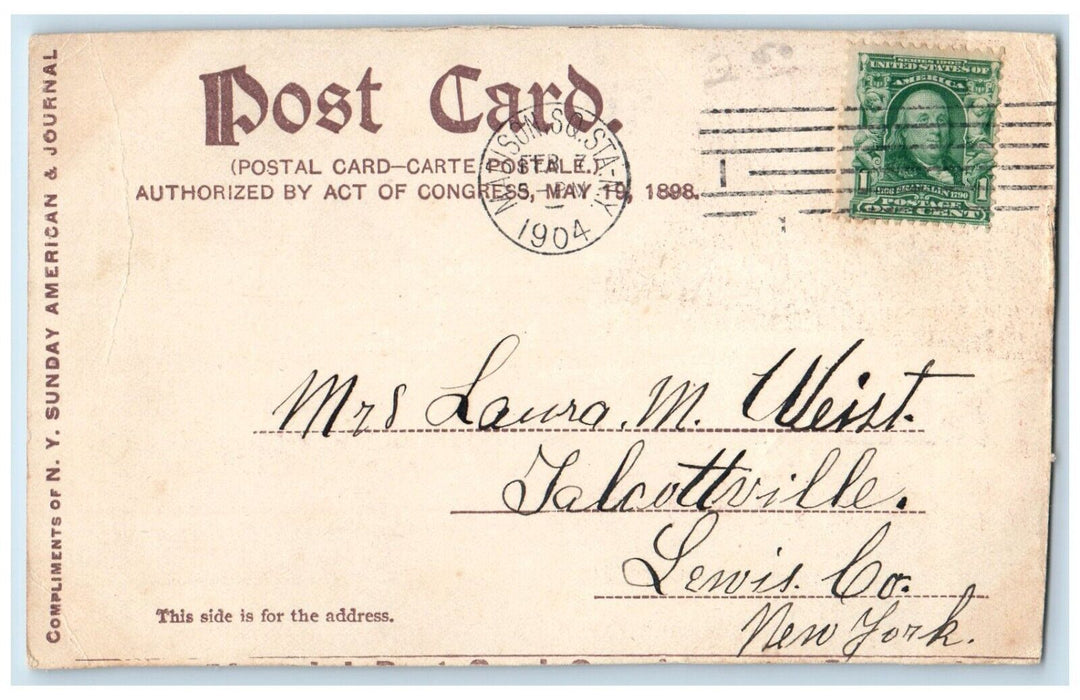 COMPLIMENTS OF N. Y. SUNDAY AMERICAN & JOURNAL
Post Card.
(POSTAL CARD—CARTE POSTALE.)
AUTHORIZED BY ACT OF CONGRESS, MAY 19, 1898.
MADISON SQ. STA. NY
FEB
1904
1
SERIES 1902
UNITED STATES OF
AMERICA
FRANKLIN
1 1
POSTAGE
ONE CENT
Mrs Laura. M. Weist.
Talcottville.
Lewis. Co.
New York.
This side is for the address.